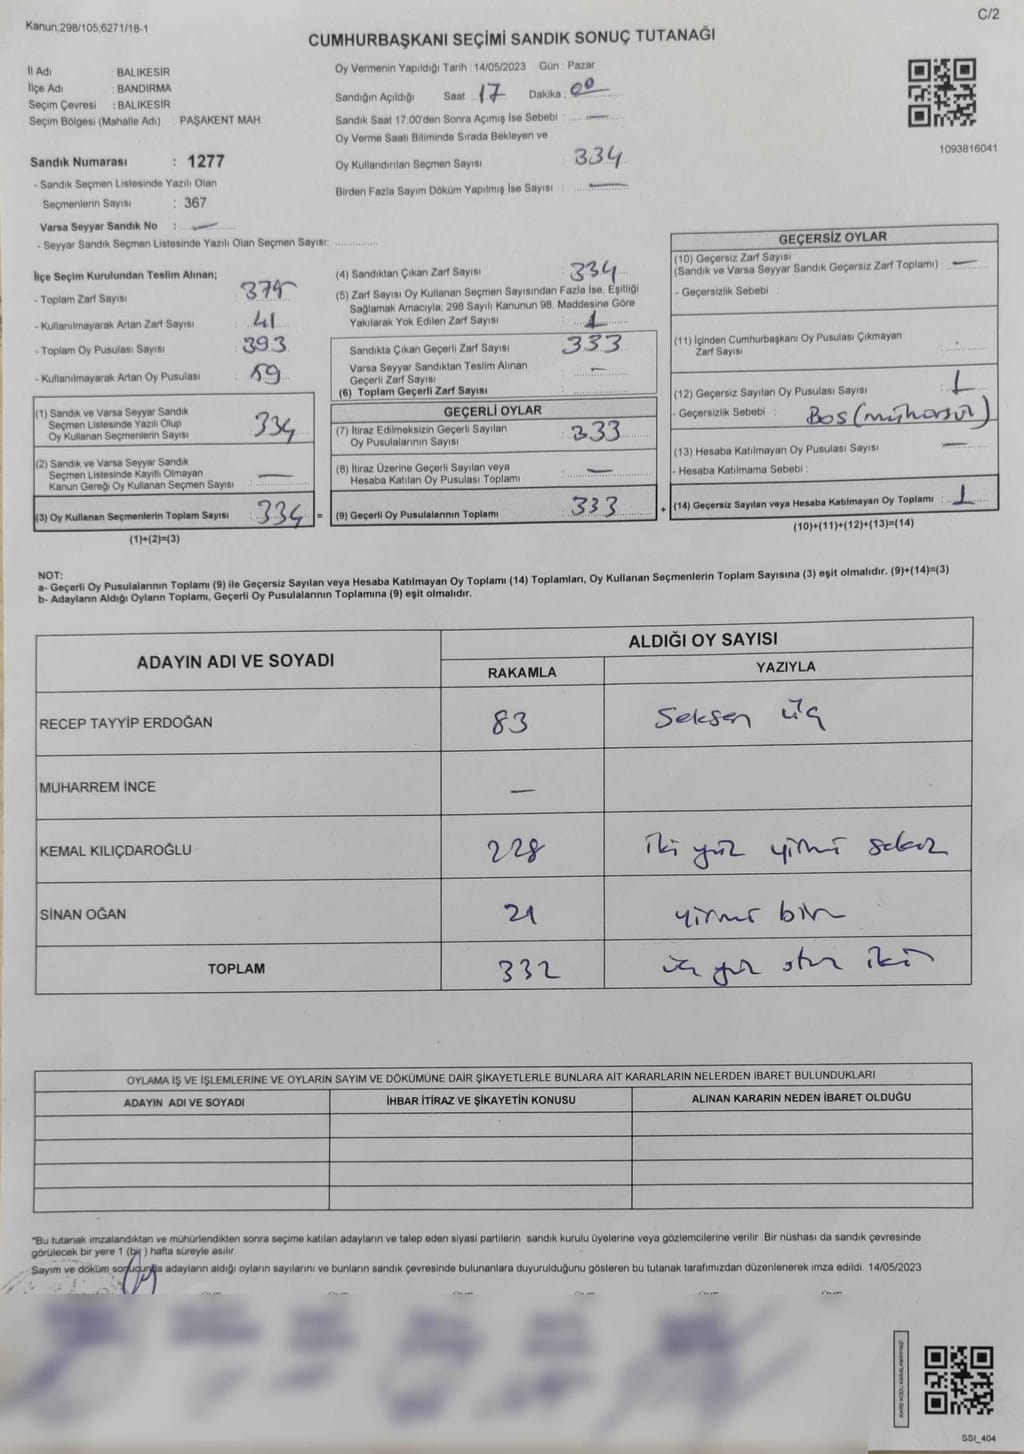 Kanun;298/105;6271/18-1
C/2
CUMHURBAŞKANI SEÇİMİ SANDIK SONUÇ TUTANAĞI
İl Adı : BALIKESİR
İlçe Adı : BANDIRMA
Seçim Çevresi : BALIKESİR
Seçim Bölgesi (Mahalle Adı) : PAŞAKENT MAH.
Sandık Numarası : 1277
- Sandık Seçmen Listesinde Yazılı Olan
Seçmenlerin Sayısı : 367
Varsa Seyyar Sandık No : —
- Seyyar Sandık Seçmen Listesinde Yazılı Olan Seçmen Sayısı: ..............
Oy Vermenin Yapıldığı Tarih : 14/05/2023 Gün : Pazar
Sandığın Açıldığı Saat : 17 Dakika : 00
Sandık Saat 17:00'den Sonra Açımış İse Sebebi : —
Oy Verme Saati Bitiminde Sırada Bekleyen ve
Oy Kullandırılan Seçmen Sayısı 334
Birden Fazla Sayım Döküm Yapılmış İse Sayısı : —
1093816041
İlçe Seçim Kurulundan Teslim Alınan;
- Toplam Zarf Sayısı 375
- Kullanılmayarak Artan Zarf Sayısı 41
- Toplam Oy Pusulası Sayısı 393
- Kullanılmayarak Artan Oy Pusulası 59
(1) Sandık ve Varsa Seyyar Sandık
Seçmen Listesinde Yazılı Olup
Oy Kullanan Seçmenlerin Sayısı 334
(2) Sandık ve Varsa Seyyar Sandık
Seçmen Listesinde Kayıtlı Olmayan
Kanun Gereği Oy Kullanan Seçmen Sayısı —
(3) Oy Kullanan Seçmenlerin Toplam Sayısı 334 =
(1)+(2)=(3)
(4) Sandıktan Çıkan Zarf Sayısı : 334
(5) Zarf Sayısı Oy Kullanan Seçmen Sayısından Fazla İse, Eşitliği
Sağlamak Amacıyla, 298 Sayılı Kanunun 98. Maddesine Göre
Yakılarak Yok Edilen Zarf Sayısı : 1
Sandıkta Çıkan Geçerli Zarf Sayısı 333
Varsa Seyyar Sandıktan Teslim Alınan
Geçerli Zarf Sayısı —
(6) Toplam Geçerli Zarf Sayısı
GEÇERLİ OYLAR
(7) İtiraz Edilmeksizin Geçerli Sayılan
Oy Pusulalarının Sayısı 333
(8) İtiraz Üzerine Geçerli Sayılan veya
Hesaba Katılan Oy Pusulası Toplamı —
(9) Geçerli Oy Pusulalarının Toplamı 333 +
GEÇERSİZ OYLAR
(10) Geçersiz Zarf Sayısı
(Sandık ve Varsa Seyyar Sandık Geçersiz Zarf Toplamı) : —
- Geçersizlik Sebebi :
(11) İçinden Cumhurbaşkanı Oy Pusulası Çıkmayan
Zarf Sayısı
(12) Geçersiz Sayılan Oy Pusulası Sayısı 1
- Geçersizlik Sebebi : Boş (mühürsüz)
(13) Hesaba Katılmayan Oy Pusulası Sayısı —
- Hesaba Katılmama Sebebi :
(14) Geçersiz Sayılan veya Hesaba Katılmayan Oy Toplamı : 1
(10)+(11)+(12)+(13)=(14)
NOT:
a- Geçerli Oy Pusulalarının Toplamı (9) ile Geçersiz Sayılan veya Hesaba Katılmayan Oy Toplamı (14) Toplamları, Oy Kullanan Seçmenlerin Toplam Sayısına (3) eşit olmalıdır. (9)+(14)=(3)
b- Adayların Aldığı Oyların Toplamı, Geçerli Oy Pusulalarının Toplamına (9) eşit olmalıdır.
ADAYIN ADI VE SOYADI
ALDIĞI OY SAYISI
RAKAMLA
YAZIYLA
RECEP TAYYİP ERDOĞAN 83 Seksen üç
MUHARREM İNCE —
KEMAL KILIÇDAROĞLU 228 iki yüz yirmi sekiz
SİNAN OĞAN 21 yirmi bir
TOPLAM 332 üç yüz otuz iki
OYLAMA İŞ VE İŞLEMLERİNE VE OYLARIN SAYIM VE DÖKÜMÜNE DAİR ŞİKAYETLERLE BUNLARA AİT KARARLARIN NELERDEN İBARET BULUNDUKLARI
ADAYIN ADI VE SOYADI
İHBAR İTİRAZ VE ŞİKAYETİN KONUSU
ALINAN KARARIN NEDEN İBARET OLDUĞU
*Bu tutanak imzalandıktan ve mühürlendikten sonra seçime katılan adayların ve talep eden siyasi partilerin sandık kurulu üyelerine veya gözlemcilerine verilir .Bir nüshası da sandık çevresinde
görülecek bir yere 1 (bir) hafta süreyle asılır.
Sayım ve döküm sonucunda adayların aldığı oyların sayılarını ve bunların sandık çevresinde bulunanlara duyurulduğunu gösteren bu tutanak tarafımızdan düzenlenerek imza edildi. 14/05/2023
SSI_404